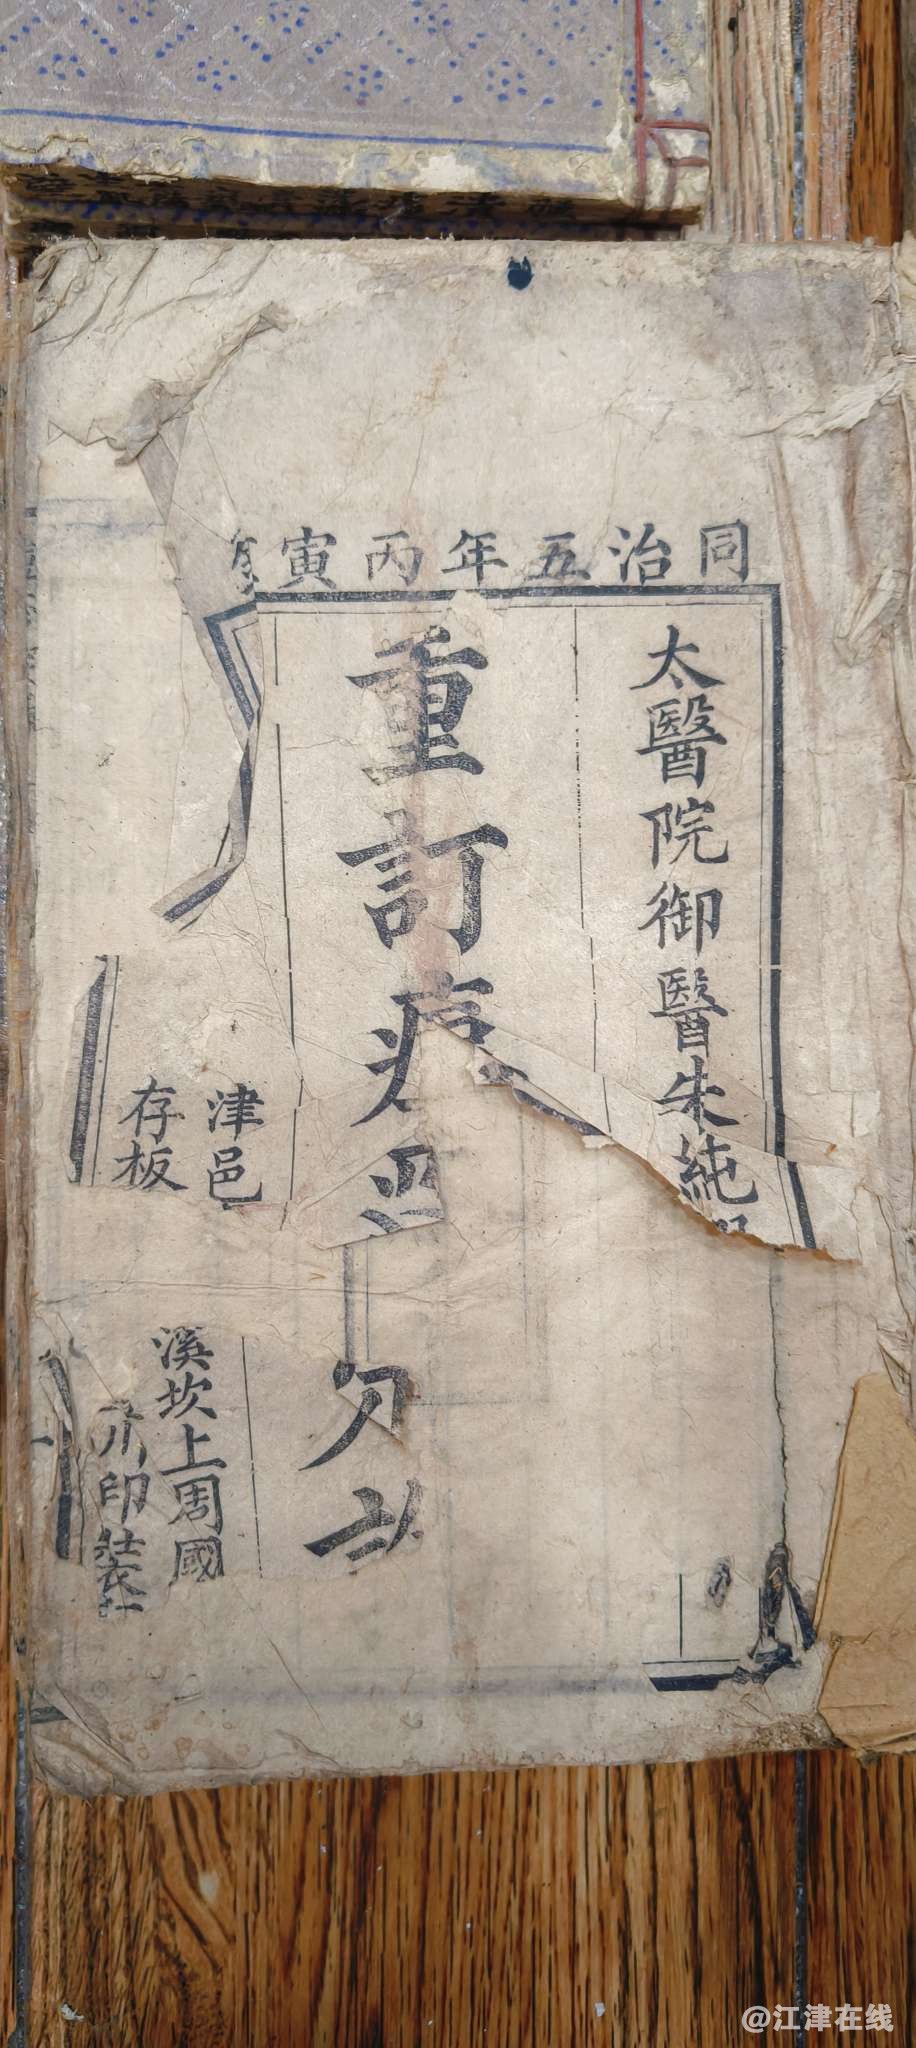 同治五年丙寅
太醫院御醫朱純
重訂
津邑
存板
溪坎上周國
印裝
@江津在线